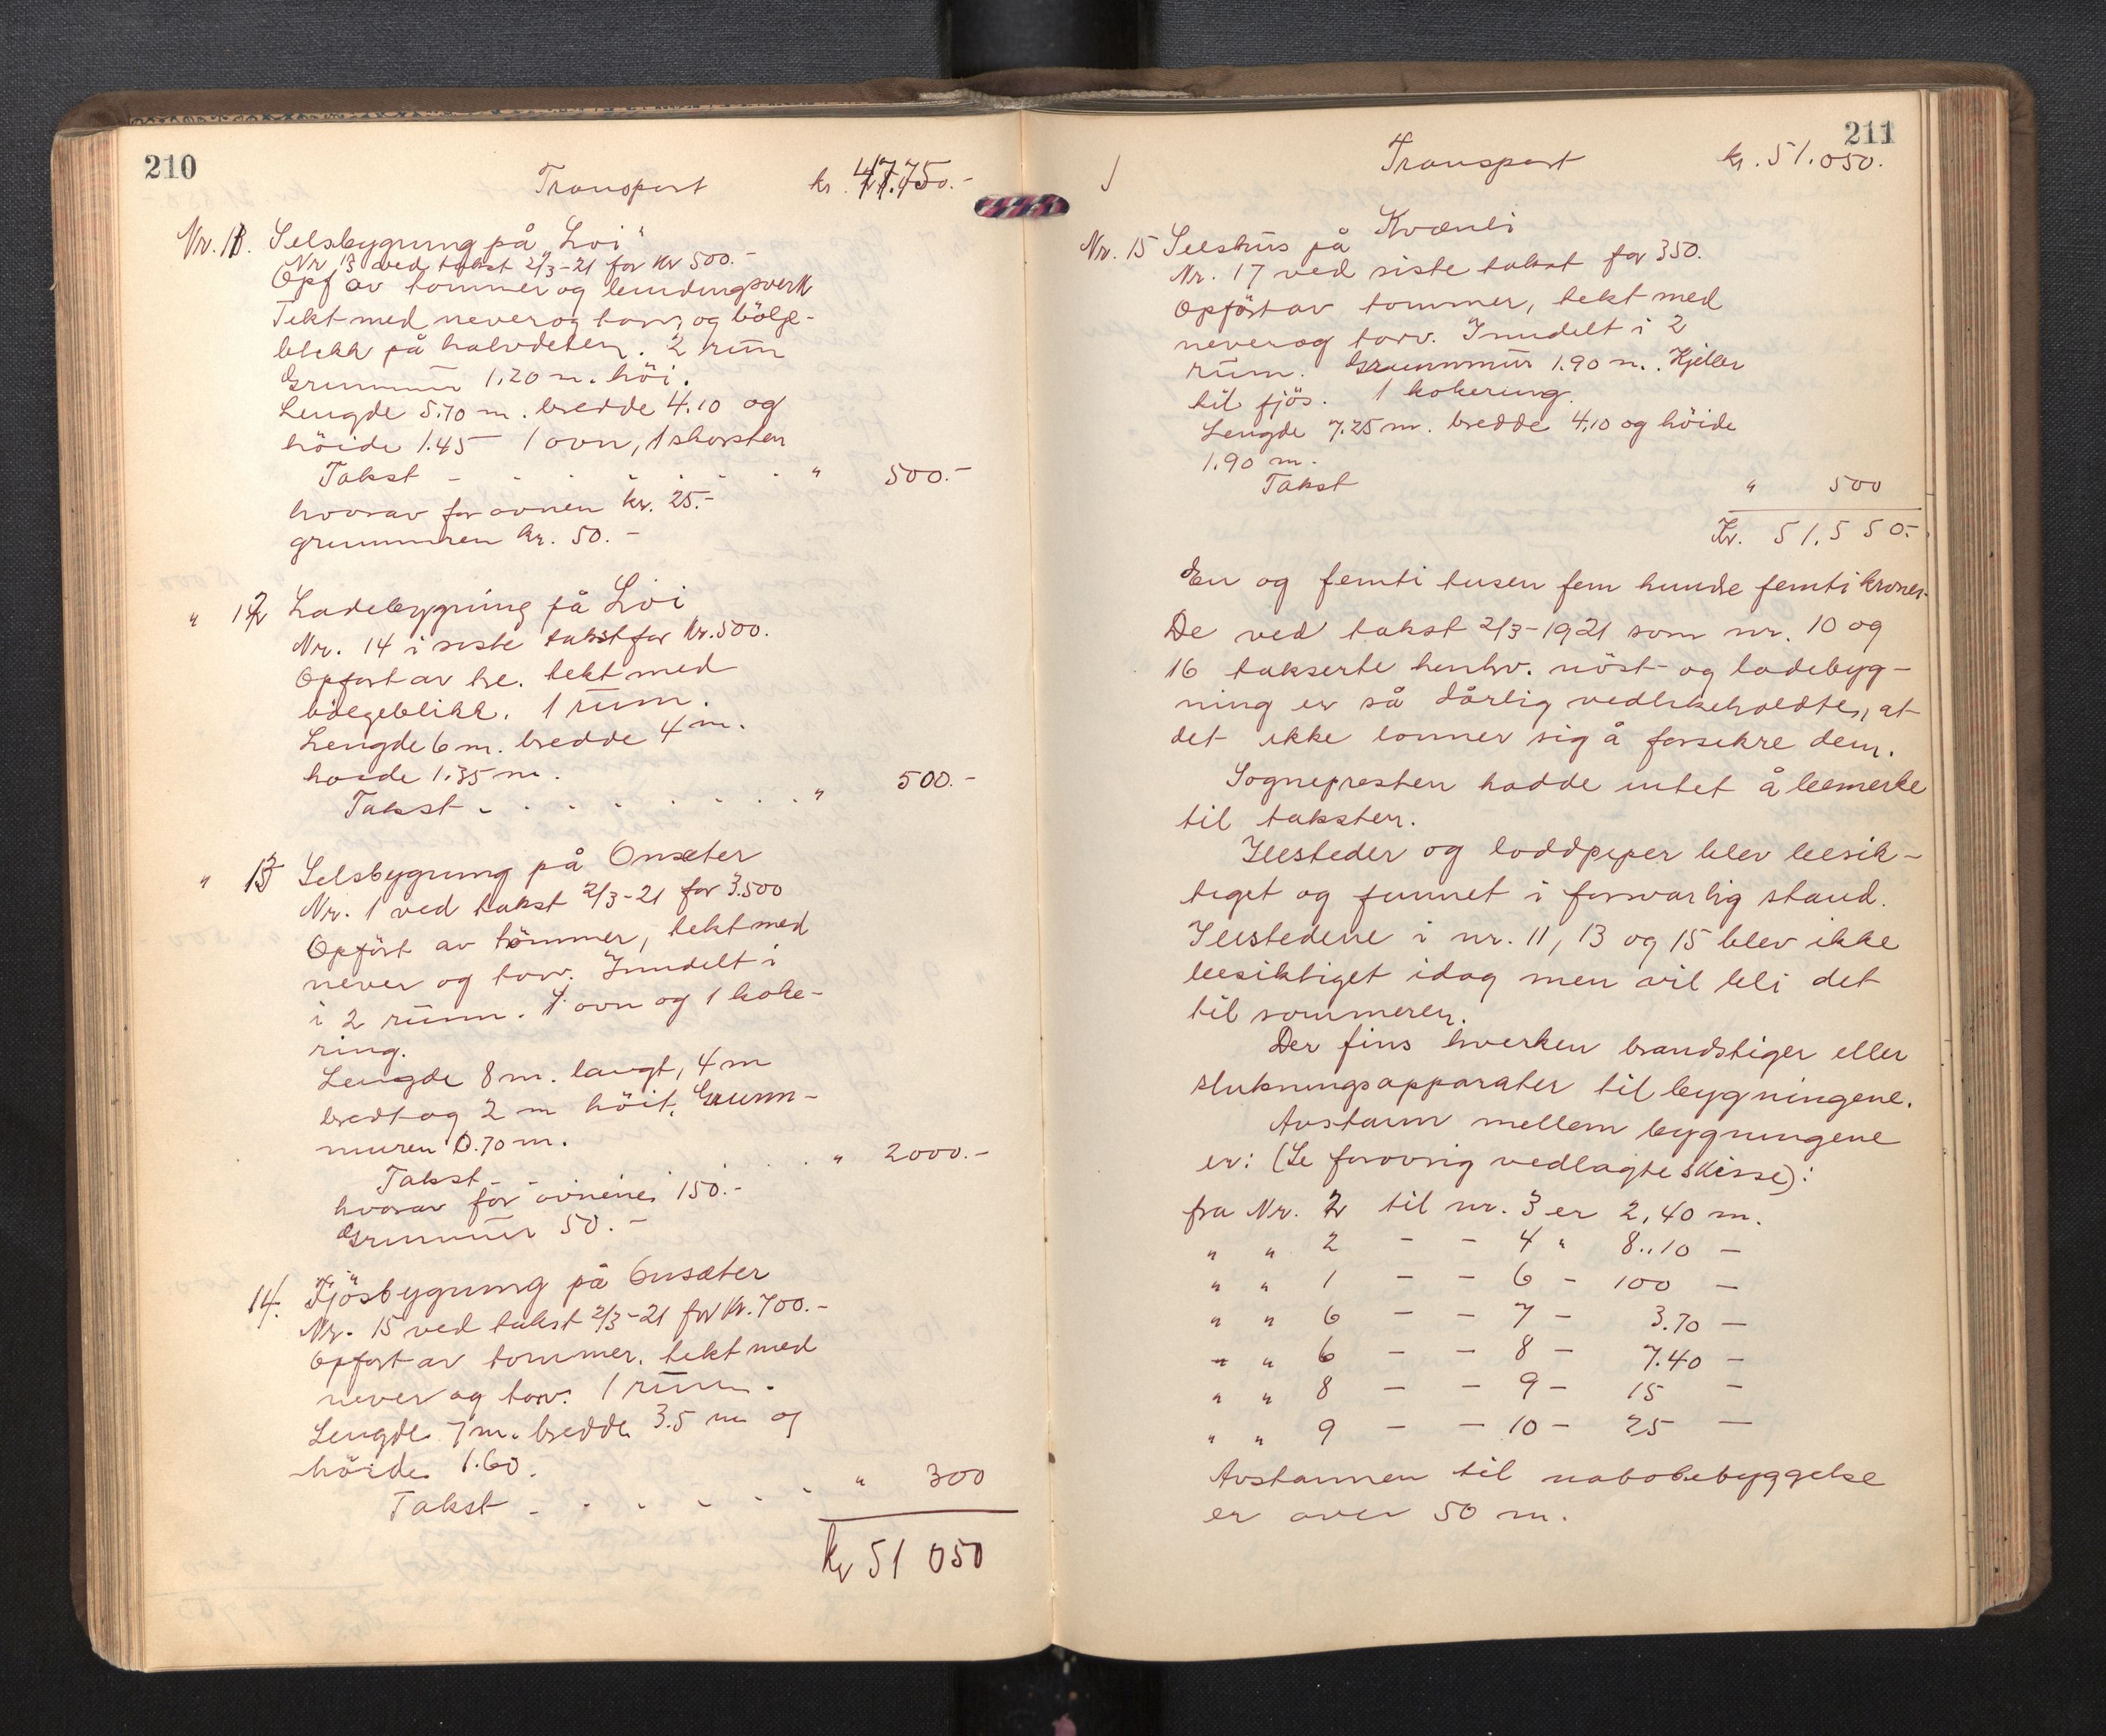 210
Transport kr. 47.750.-
Nr. 11. Selsbygning på "Lvi"
Nr 13 ved takst 2/3-21 for kr 500.-
Opf av tømmer og bindingsverk
Tekt med never og torv, og bölge-
blikk på halvdelen. 2 rum
Grunnmur 1.20 m. höi.
Lengde 5.70 m. bredde 4.10 og
höide 1.45 1 ovn, 1 skorsten
Takst - - - - - - " 500.-
hvorav for ovnen kr. 25.-
grunnmuren kr. 50.-
" 12 Ladebygning på Lvi
Nr. 14 i siste takst for kr. 500.
Opfört av bre. tekt med
bölgeblikk. 1 rum.
Lengde 6 m. bredde 4 m.
höide 1.35 m.
Takst - - - - - - - " 500.-
" 13 Selsbygning på Onsæter
Nr. 1 ved takst 2/3-21 for 3.500
Opfört av tömmer, tekt med
never og torv. Inndelt i
i 2 rum. 1 ovn og 1 koke-
ring.
Lengde 8 m. langt, 4 m
bredt og 2 m höit. Grunn-
muren 0.70 m.
Takst - - - - " 2000.-
hvorav for ovnene 150.-
Grunnmur 50.-
14. Fjösbygning på Onsæter
Nr. 15 ved takst 2/3-21 for kr. 700.-
Opfört av tømmer. tekt med
never og torv. 1 rum.
Lengde 7 m. bredde 3.5 m og
höide 1.60.
Takst - - - - - - " 300
kr 51 050
211
Transport kr. 51.050.
Nr. 15 Selshus på Kvænli
Nr. 17 ved siste takst for 350.
Opfört av tømmer, tekt med
never og torv. Inndelt i 2
rum. Grunnmur 1.90 m. Kjeller
til fjös. 1 kokering.
Lengde 7.25 m. bredde 4.10 og höide
1.90 m.
Takst " 500
Kr. 51.550.-
En og femti tusen fem hundre femti kroner.
De ved takst 2/3-1921 som nr. 10 og
16 takserte henhv. nöst- og ladebyg-
ning er så dårlig vedlikeholdte, at
det ikke lønner sig å forsikre dem.
Sognepresten hadde intet å bemerke
til taksten.
Ildsteder og loddpiper blev besik-
tiget og funnet i forsvarlig stand.
Ildstedene i nr. 11, 13 og 15 blev ikke
besiktiget idag men vil bli det
til sommeren.
Der fins hverken brandstiger eller
slukningsapparater til bygningene.
Avstann mellem bygningene
er: (Se forøvrig vedlagte skisse):
fra Nr. 2 til nr. 3 er 2,40 m.
" " 2 - - 4 " 8..10 -
" " 1 - - 6 - 100 -
" " 6 - - 7 - 3.70 -
" " 6 - - 8 - 7.40 -
" " 8 - - 9 - 15 -
" " 9 - - 10 - 25 -
Avstannen til nabobebyggelse
er over 50 m.